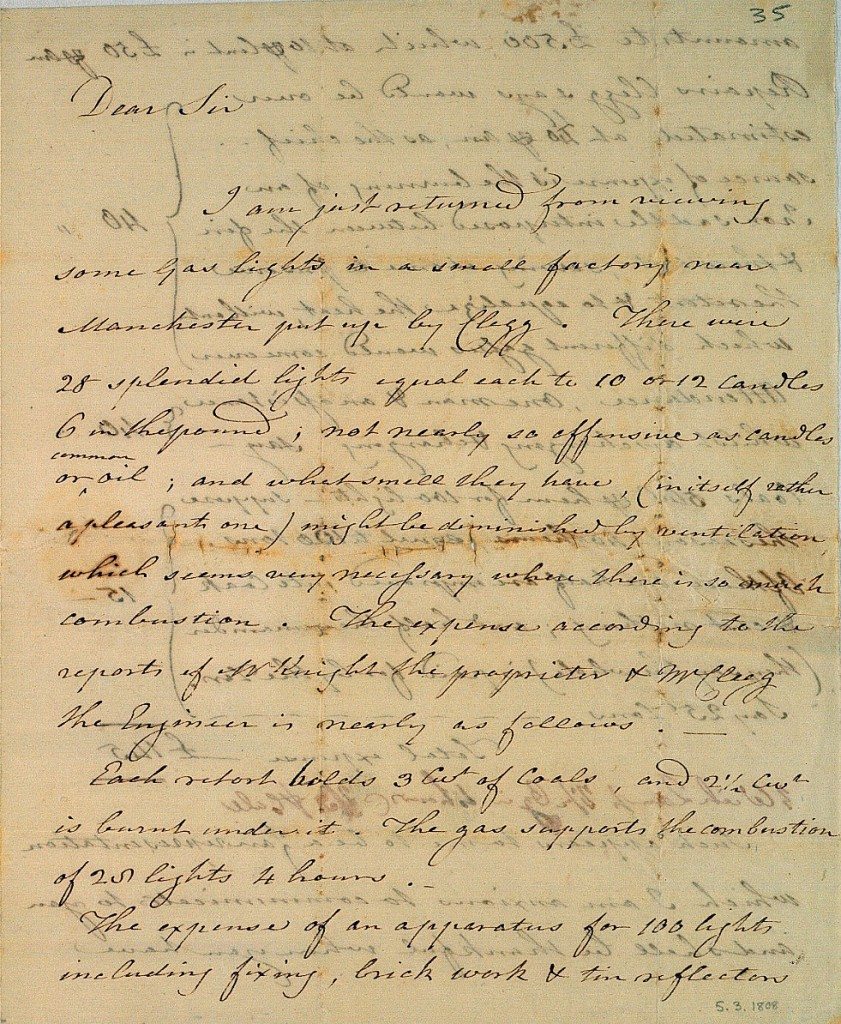 35
Dear Sir
I am just returned from viewing
some Gas lights in a small factory near
Manchester put up by Clegg. There were
28 splendid lights equal each to 10 or 12 candles
6 in the pound; not nearly so offensive as candles
common
or oil; and what smell they have, (in itself rather
a pleasant one) might be diminished by ventilation,
which seems very necessary where there is so much
combustion. The expense according to the
reports of Mr Knight the proprietor & Mr Clegg
the Engineer is nearly as follows. —
Each retort holds 3 Cwt of Coals, and 2½ Cwt
is burnt under it. The gas supports the combustion
of 28 lights 4 hours. —
The expense of an apparatus for 100 lights
including fixing, brick work & tin reflectors
5.3.1808